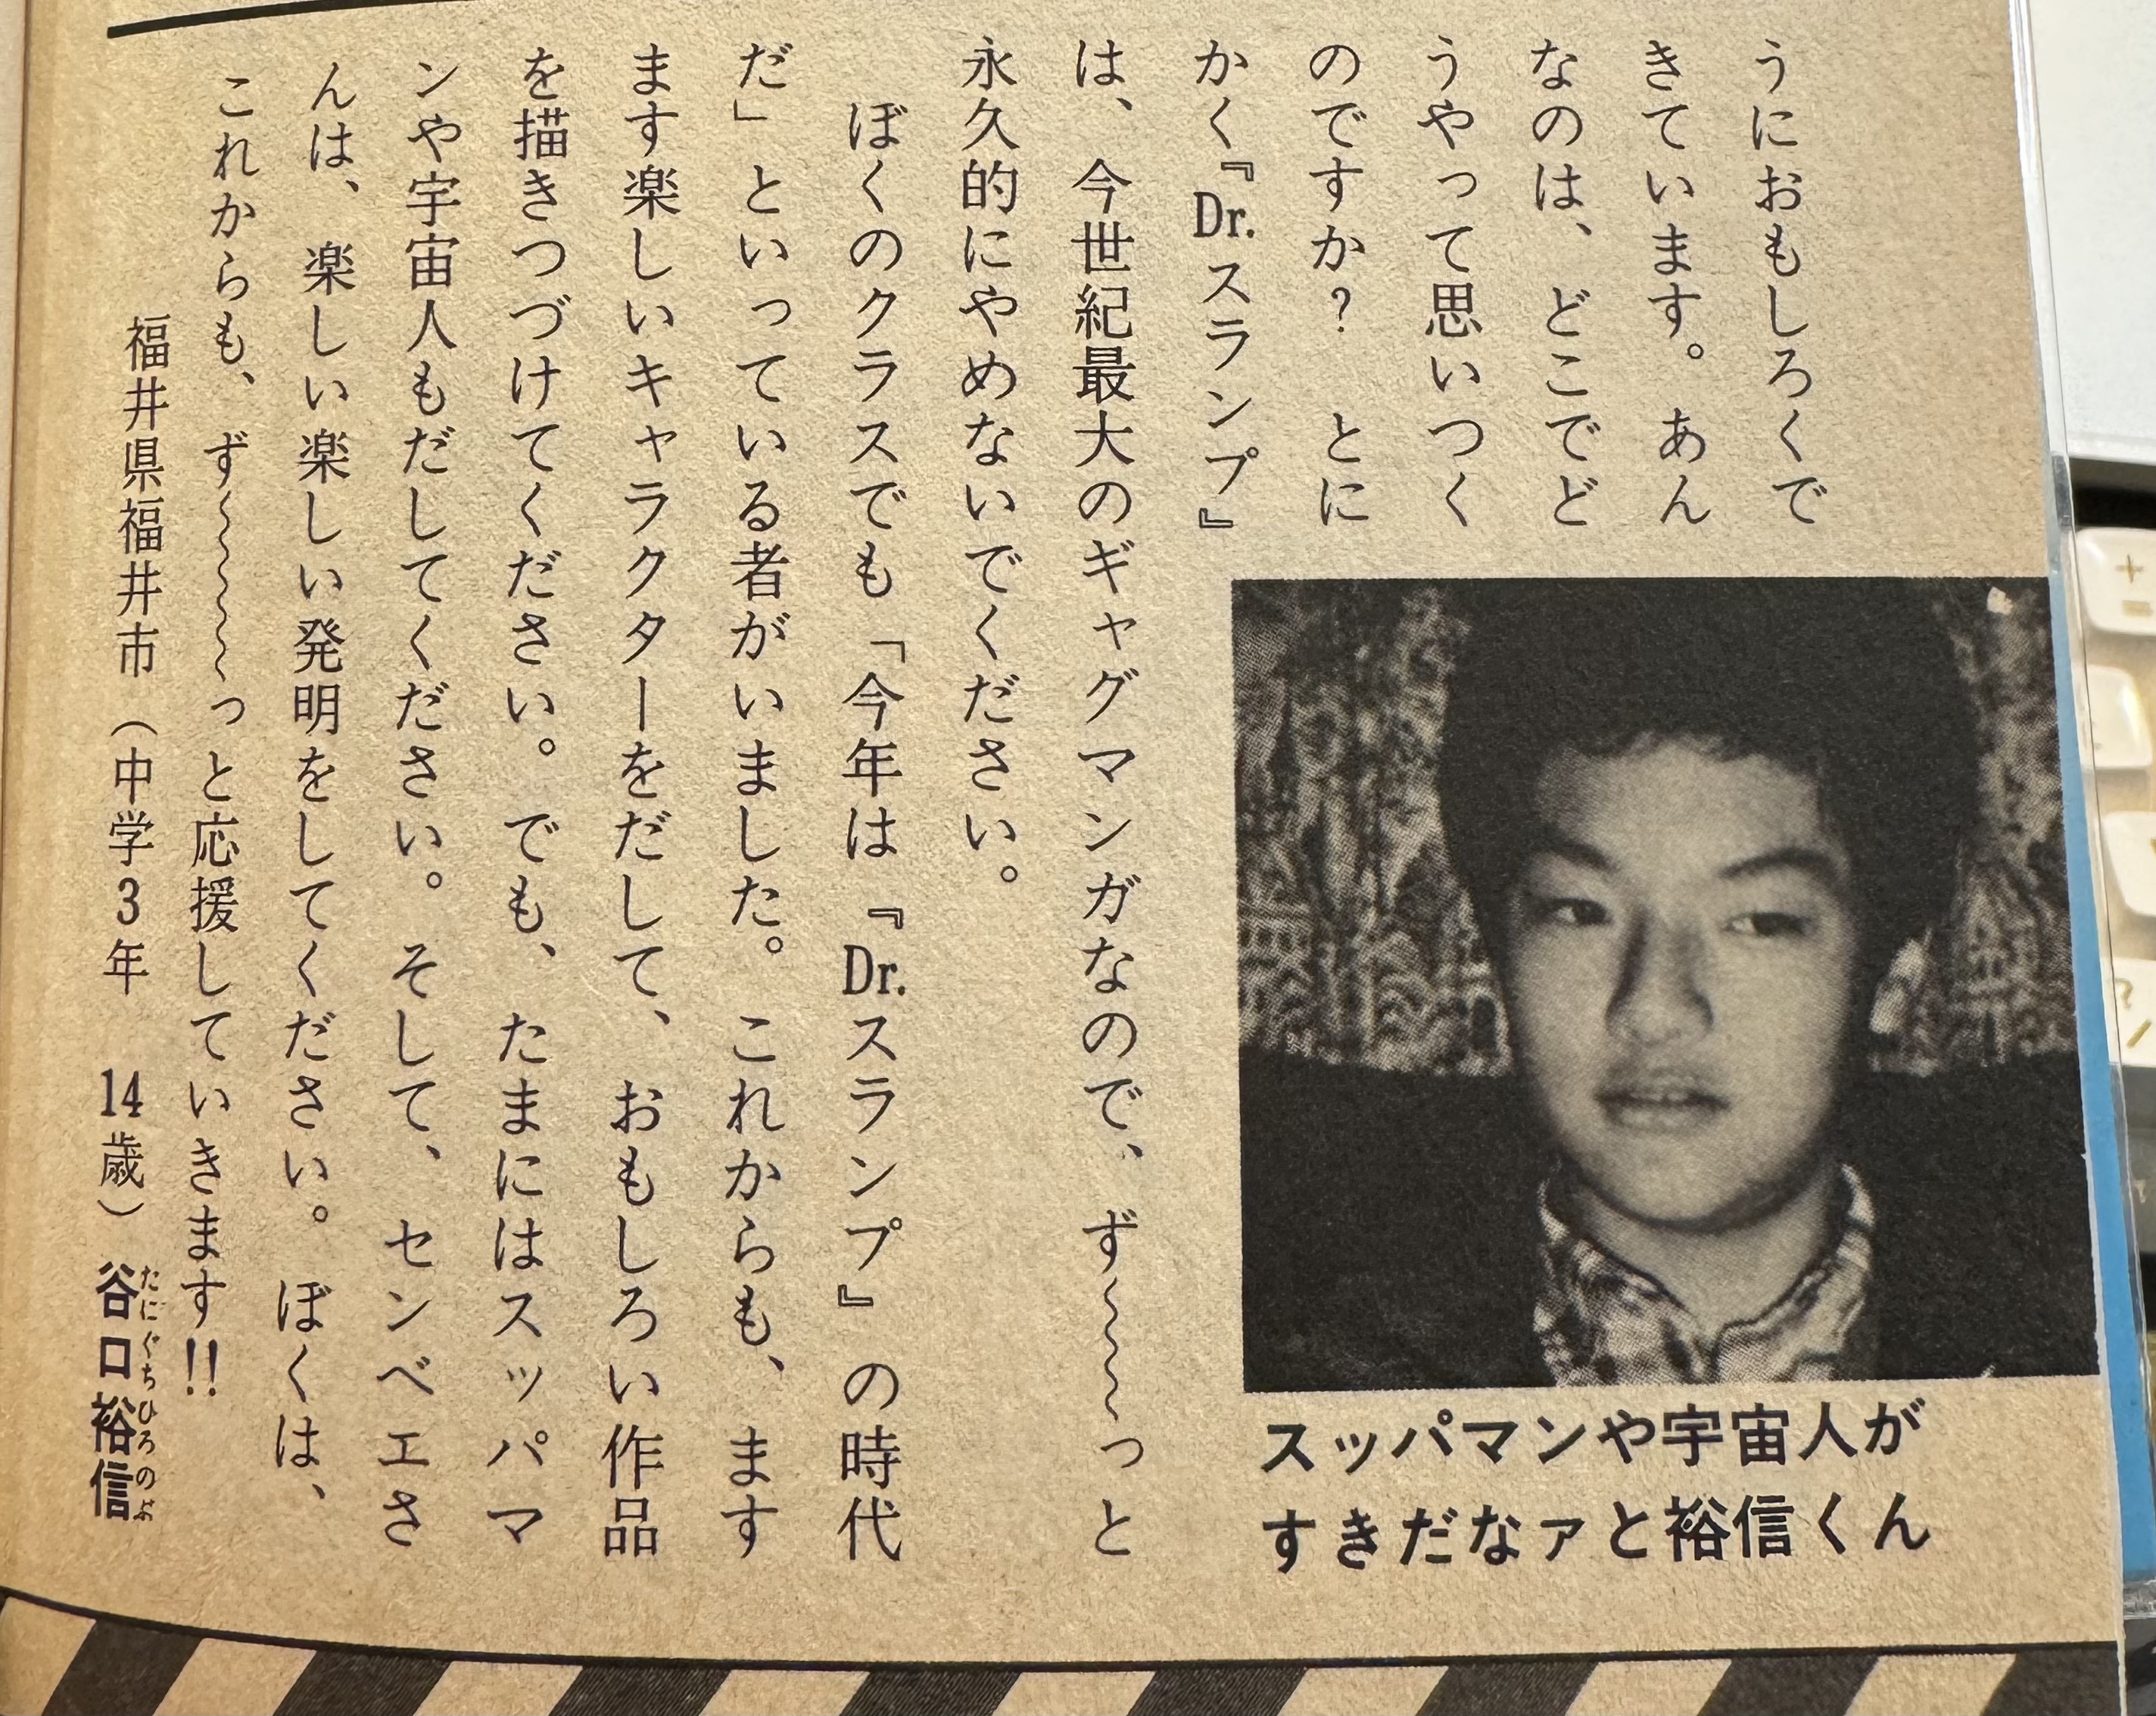 うにおもしろくで
きています。あん
なのは、どこでど
うやって思いつく
のですか？　とに
かく『Dr.スランプ』
は、今世紀最大のギャグマンガなので、ず〜〜〜〜っと
永久的にやめないでください。
　ぼくのクラスでも「今年は『Dr.スランプ』の時代
だ」といっている者がいました。これからも、ます
ます楽しいキャラクターをだして、おもしろい作品
を描きつづけてください。でも、たまにはスッパマ
ンや宇宙人もだしてください。そして、センベエさ
んは、楽しい楽しい発明をしてください。ぼくは、
これからも、ず〜〜〜〜〜っと応援していきます!!
福井県福井市（中学3年　14歳）谷口裕信
たにぐちひろのぶ
スッパマンや宇宙人が
すきだなァと裕信くん